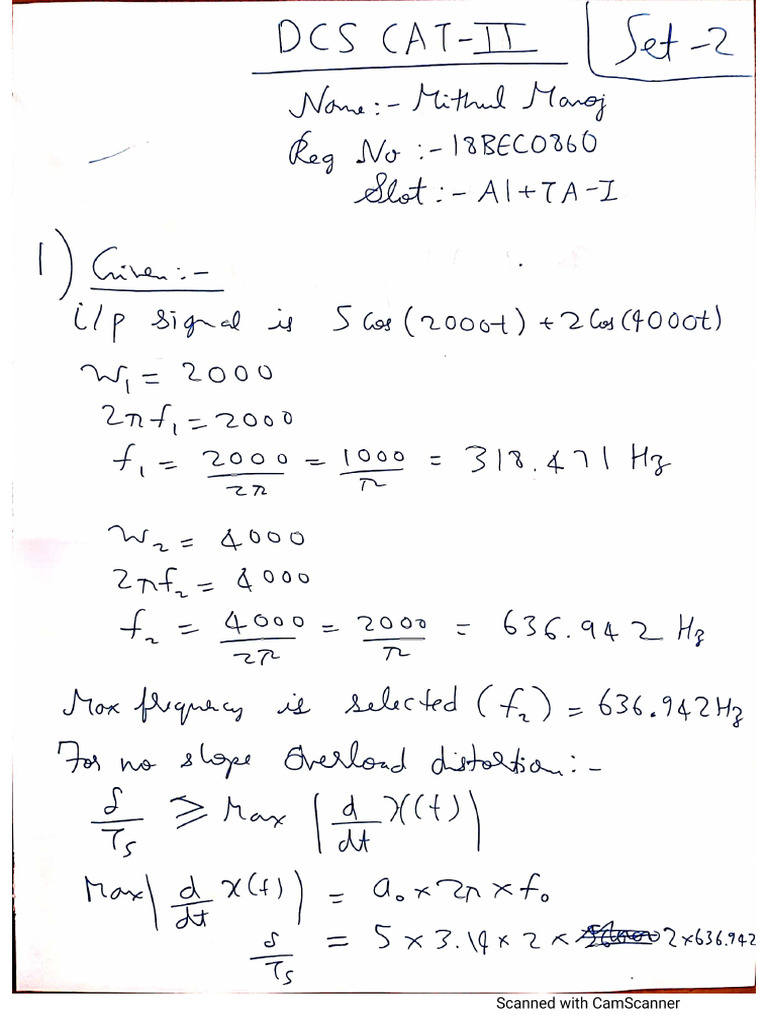 DCS CAT-II
Set-2
Name:- Mithul Manoj
Reg No:- 18BEC0860
Slot:- A1+TA-I
1) Given:-
i/p signal is 5 Cos(2000t) + 2 Cos(4000t)
W₁ = 2000
2πf₁ = 2000
f₁ = 2000/2π = 1000/π = 318.471 Hz
W₂ = 4000
2πf₂ = 4000
f₂ = 4000/2π = 2000/π = 636.942 Hz
Max frequency is selected (f₂) = 636.942Hz
For no slope Overload distortion:-
δ/Ts ≥ Max |d/dt x(t)|
Max |d/dt x(t)| = a₀ × 2π × f₀
δ/Ts = 5 × 3.14 × 2 × 2×636.942
Scanned with CamScanner